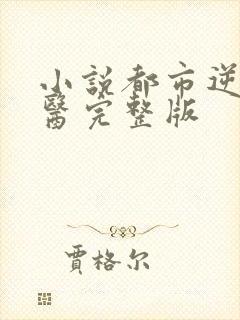 小説都市逆
醫完整版
賈格尔